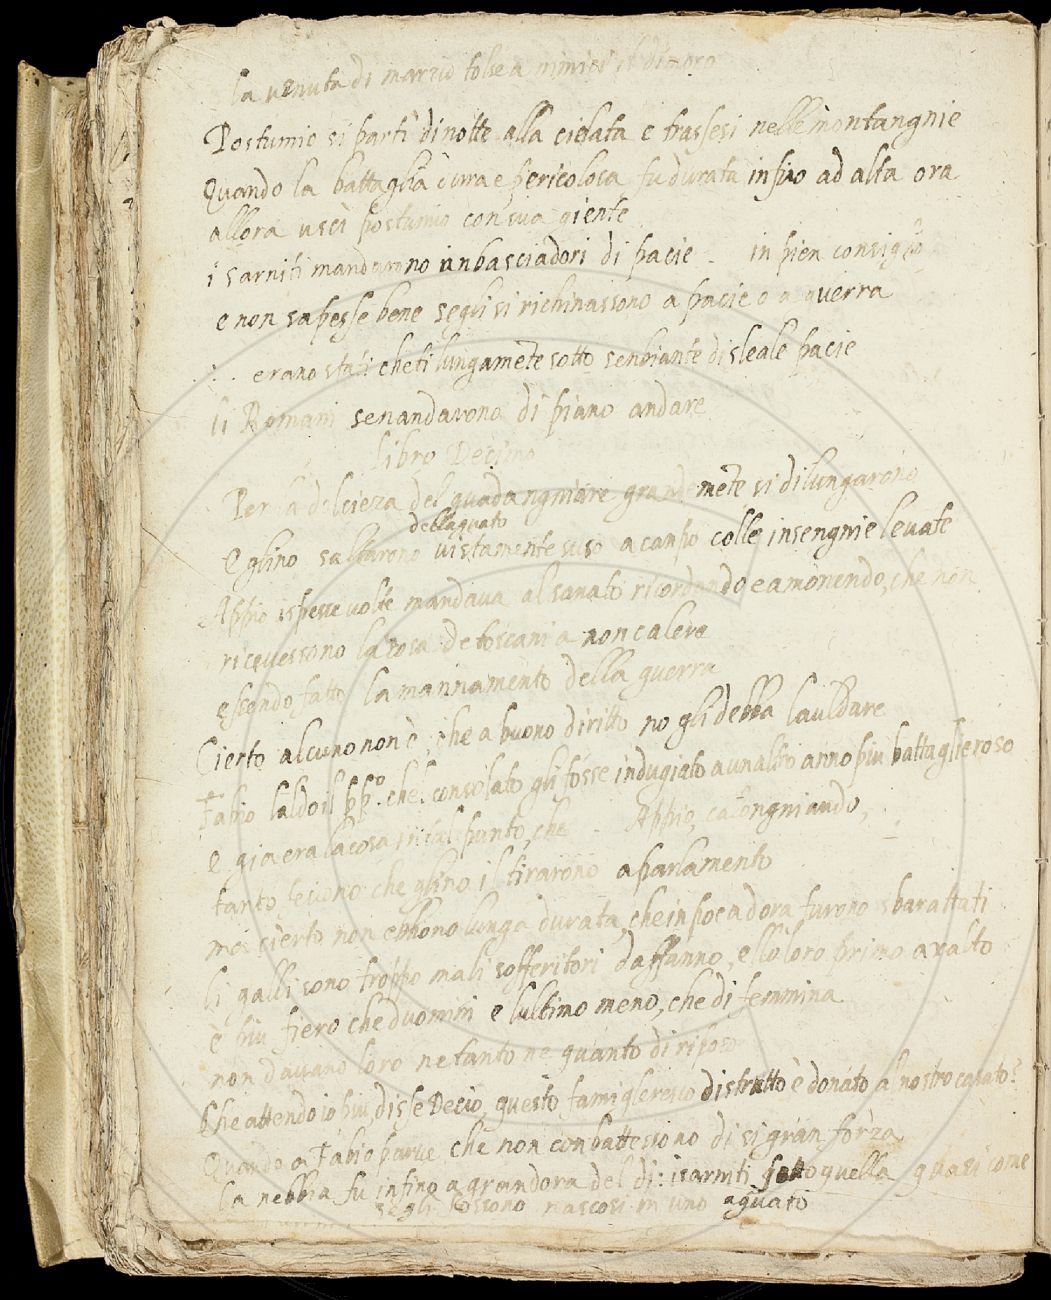 la venuta di marzio tolse a nimici il dimoro
Postumio si partì di notte alla cielata e trassesi nelle montangnie
Quando la battaglia dura e pericolosa fu durata insino ad alta ora
allora uscì postumio con sua giente
i sarniti mandarono inbasciadori di pacie . in pien consiglio
e non sapesse bene segli si richinassono a pacie o a guerra
erano stati cheti lungamete sotto senbiante di sleale pacie
li Romani senandavono di piano andare
libro Decimo
Per la dolcieza del guadangniare grandemete si dilungarono
dellaguato
Eglino saltarono vistamente suso a canpo colle insengnie levate
Appio ispesse volte mandava al sanato ricordando e amonendo, che non
ricevessono la cosa de toscani a non calere
essendo fatto lamannamento della guerra
Cierto alcuno non è, che a buono diritto no gli debba lauldare
Fabio laldo il pp.º che l consolato gli fosse indugiato a unaltro anno piu battaglieroso
e gia era la cosa in tal punto, che Appio, catongniando,
tanto feciono che glino il tirarono a parlamento
ma cierto non ebbono lunga durata, che in poca dora furono sbarattati
li galli sono troppo mali sofferitori daffanno, e llo loro primo axalto
è piu fiero che duomini e lultimo meno, che di femmina
non davano loro ne tanto ne quanto di riposo
Che attendo io piu, disse Decio, questo famiglerevo distrutto è donato al nostro casato?
Quando a Fabio parve che non conbattessono di si gran forza
la nebbia fu infino a grandora del dì: i sarniti sotto quella quasi come
segli fossono nascosi in uno aguato